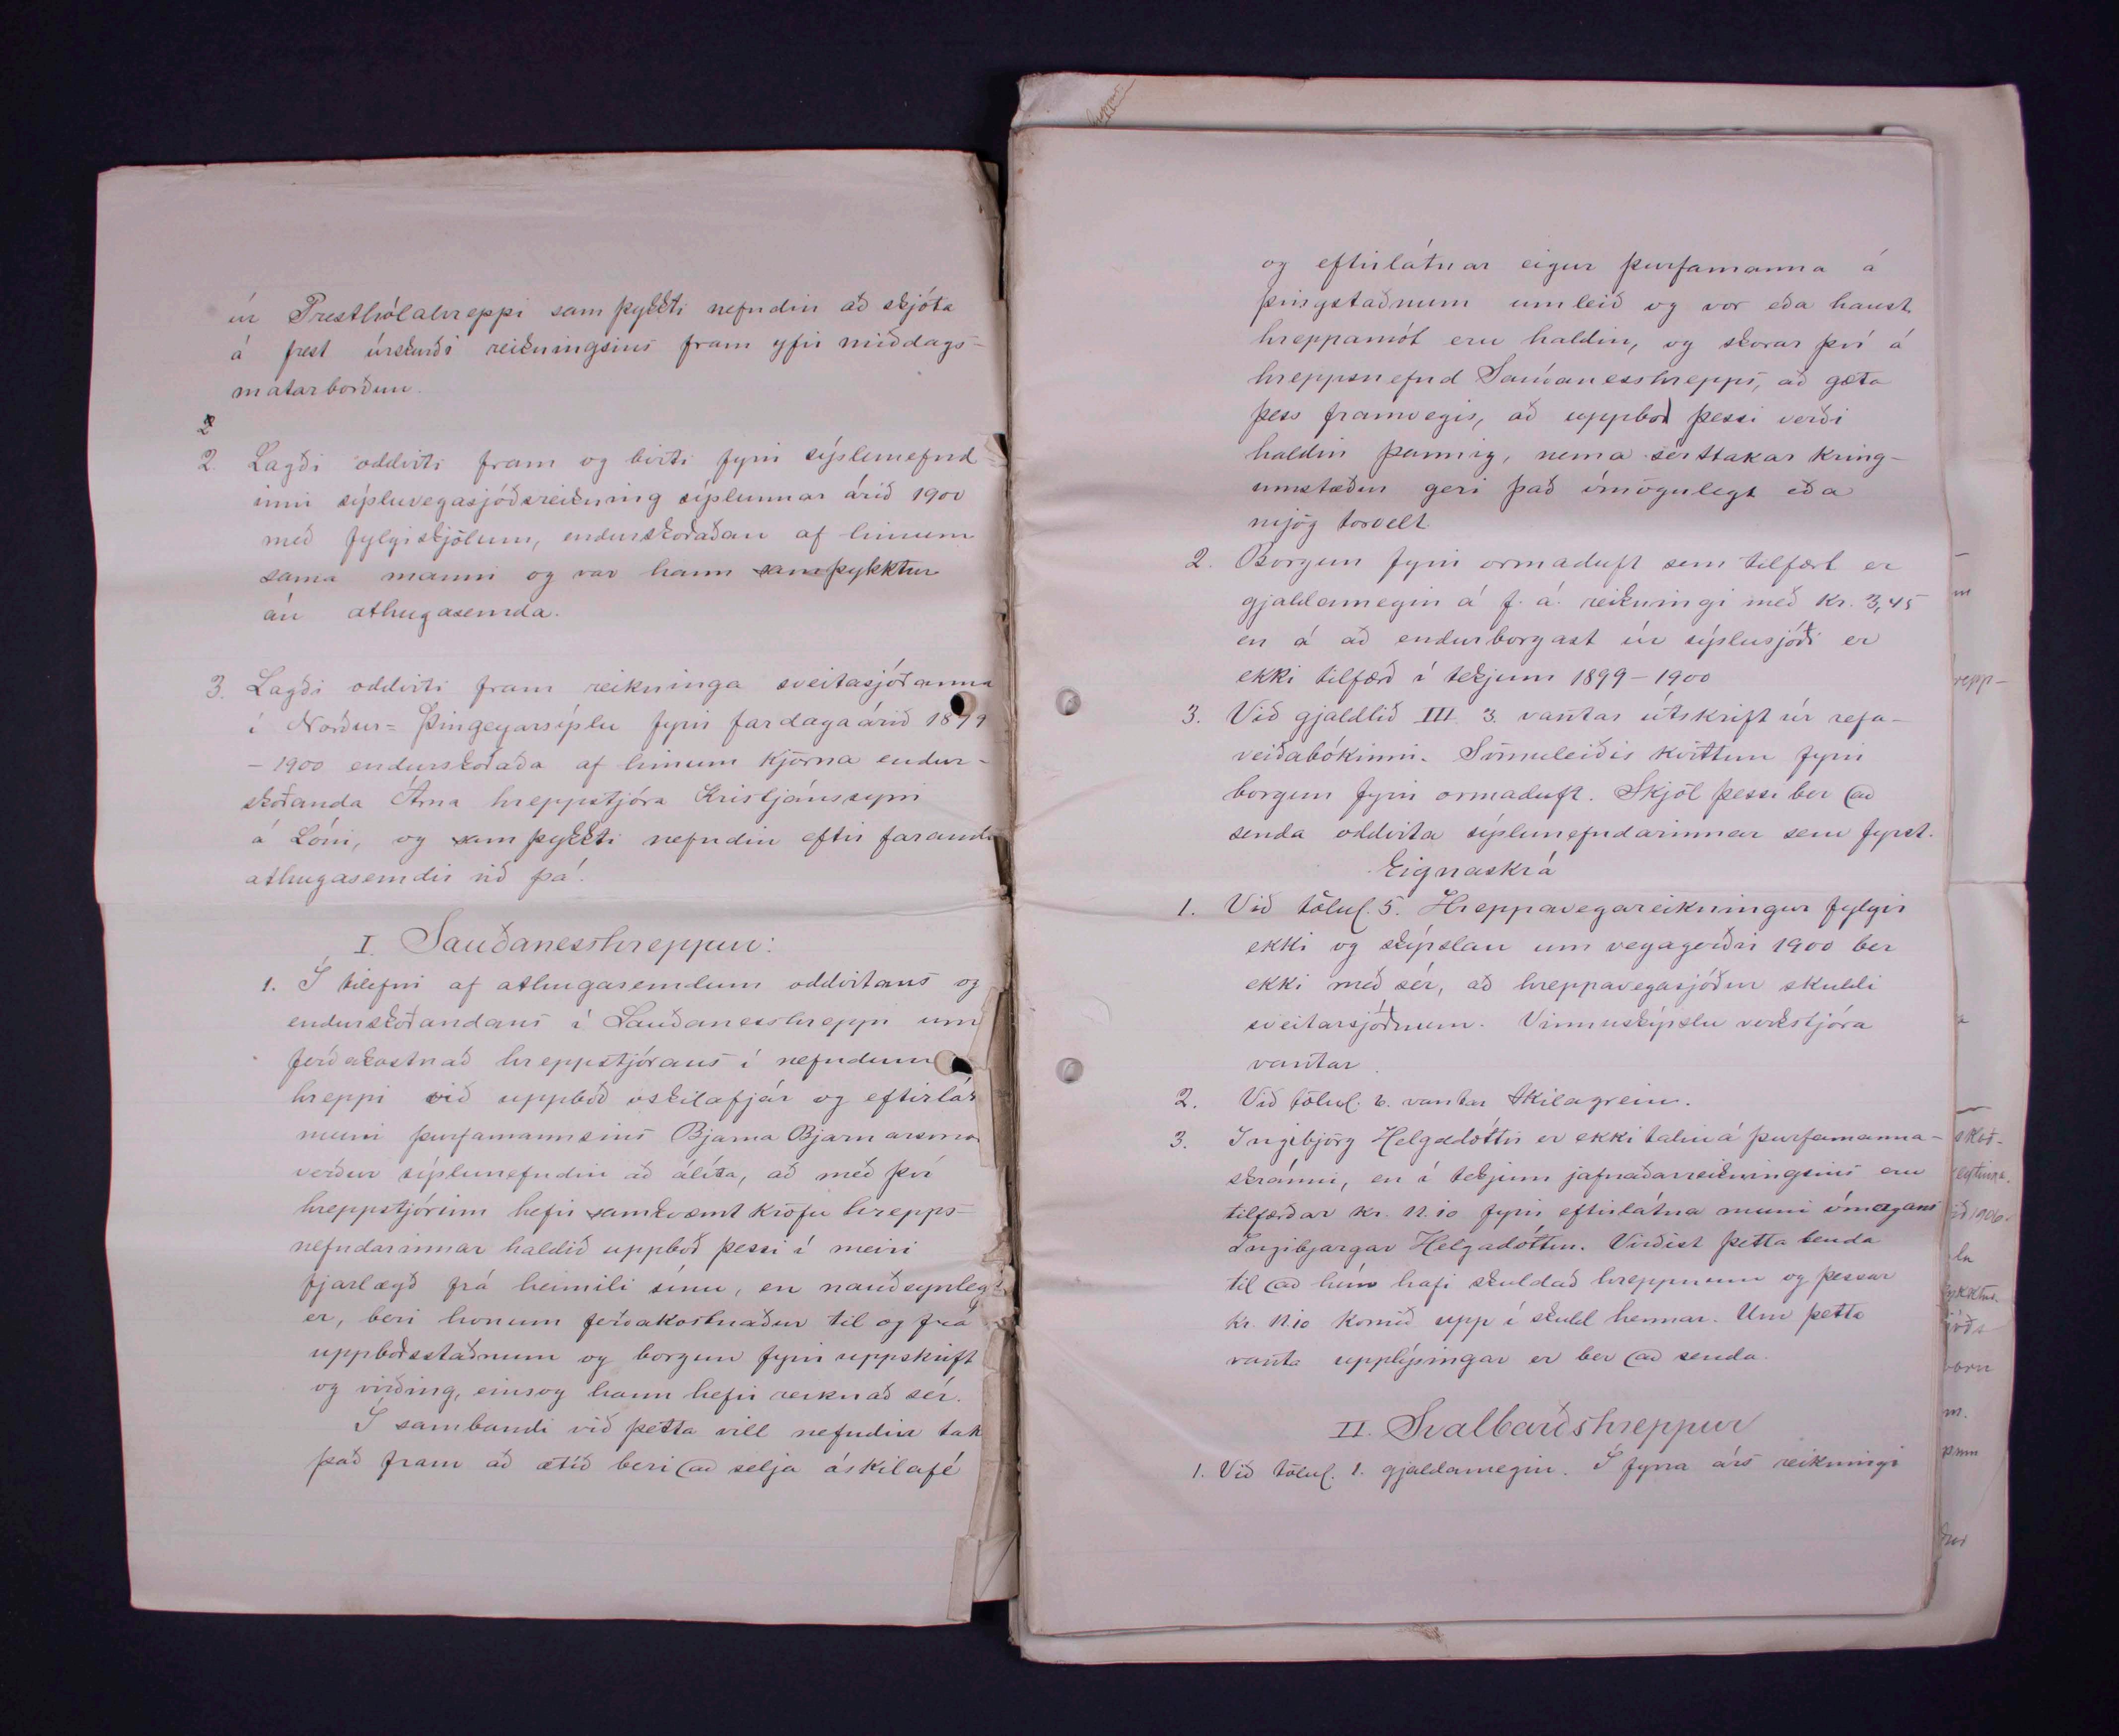 úr Presthólahreppi samþykkti nefndin að skjóta
á frest úrskurði reikningsins fram yfir miðdags-
matarborðun.
2
2. Lagði oddviti fram og birti fyrir sýslunefnd
inni sýsluvegasjóðsreikning sýslunnar árið 1900
með fylgiskjölum, endurskoðaðan af hinum
sama manni og var hann samþykktur
án athugasemda.
3. Lagði oddviti fram reikninga sveitasjóðanna
í Norður-Þingeyarsýslu fyrir fardagaárið 1899
- 1900 endurskoðaða af hinum kjörna endur-
skoðanda Árna hreppstjóra Kristjánssyni
á Lóni, og samþykkti nefndin eftir farandi
athugasemdir við þá.
I. Sauðaneshreppur:
1. Í tilefni af athugasemdum oddvitans og
endurskoðandans í Sauðaneshreppi um
ferðakostnað hreppstjórans í nefndum
hreppi við uppboð óskilafjár og eftirlát
muni þurfamannsins Bjarna Bjarnarsonar
verður sýslunefndin að álíta, að með því
hreppstjórinn hefir samkvæmt kröfu hrepps-
nefndarinnar haldið uppboð þessi í meiri
fjarlægð frá heimili sínu, en nauðsynlegt
er, beri honum ferðakostnaður til og frá
uppboðsstaðnum og borgun fyrir uppskrift
og virðing, einsog hann hefir reiknað sér.
Í sambandi við þetta vill nefndin tak
það fram að ætíð beri að selja óskilafé
og eftirlátnar eigur þurfamanna á
þingstaðnum umleið og vor eða haust
hreppamót eru haldin, og skorar því á
hreppsnefnd Sauðaneshrepps, að gæta
þess framvegis, að uppboð þessi verði
haldin þannig, nema sérstakar kring-
umstæður geri það ómögulegt eða
mjög torvelt
2. Borgun fyrir ormaduft sem tilfært er
gjaldamegin á f. á. reikningi með kr. 3,45
en á að endurborgast úr sýslusjóði er
ekki tilfærð í tekjum 1899-1900
3. Við gjaldlið III 3. vantar útskrift úr refa-
veiðabókinni. Sömuleiðis kvittun fyrir
borgun fyrir ormaduft. Skjöl þessi ber að
senda oddvita sýslunefndarinnar sem fyrst.
Eignaskrá
1. Við tölul. 5. Hreppavegareikningur fylgir
ekki og skýrslan um vegagerðir 1900 ber
ekki með sér, að hreppavegasjóður skuldi
sveitarsjóðnum. Vinnuskýrslu verkstjóra
vantar.
2. Við tölul. 6. vantar skilagrein.
3. Ingibjörg Helgadóttir er ekki talin á þurfamanna-
skránni, en í tekjum jafnaðarreikningsins eru
tilfærðar kr. 11.10 fyrir eftirlátna muni ómagans
Ingibjargar Helgadóttur. Virðist þetta benda
til að hún hafi skuldað hreppnum og þessar
kr. 11.10 komið upp í skuld hennar. Um þetta
vanta upplýsingar er ber að senda.
II. Svalbarðshreppur
1. Við tölul. 1. gjaldamegin. Í fyrra árs reikningi